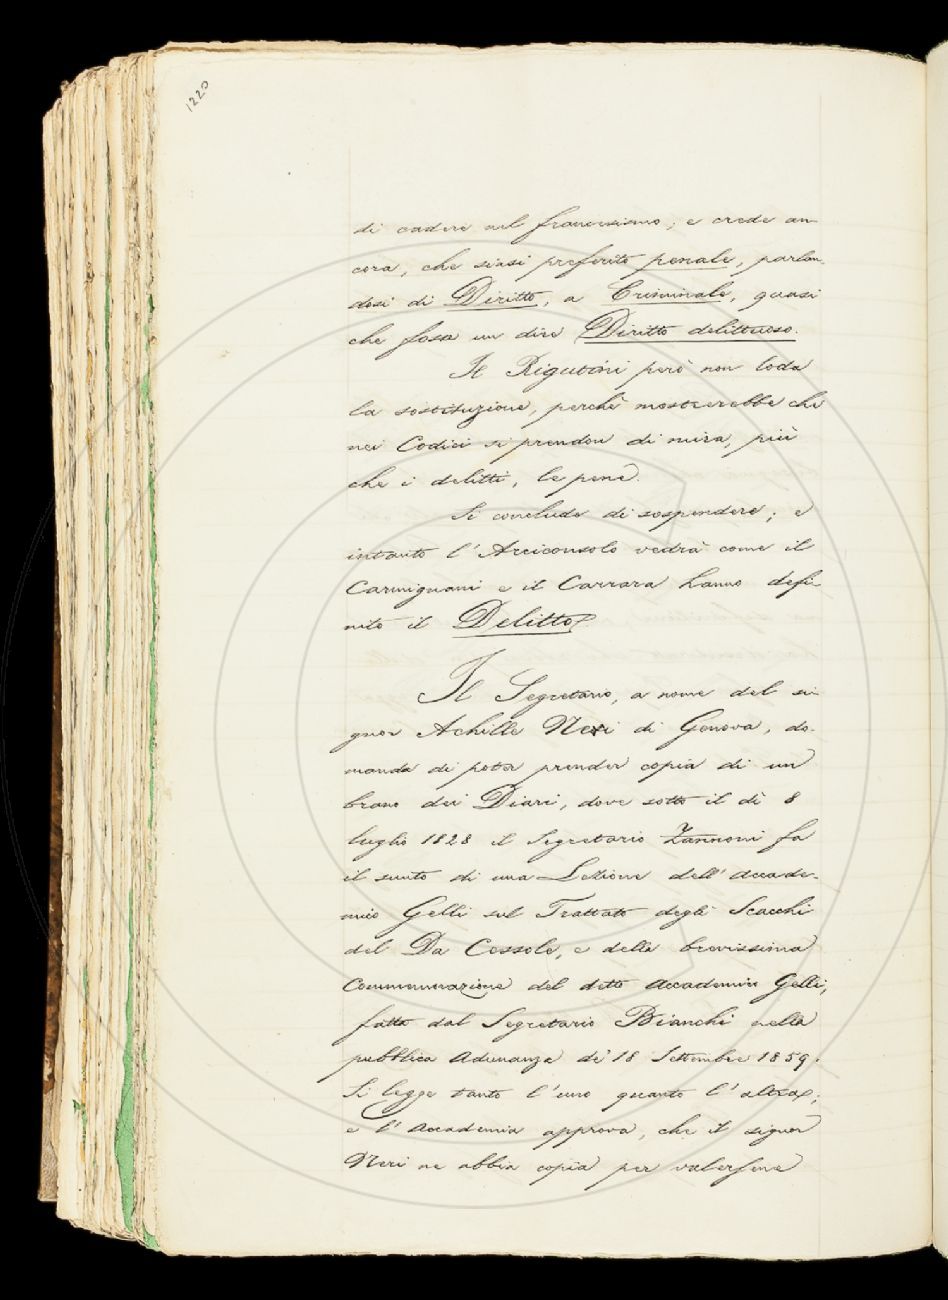 1220
di cadere nel francesismo; e crede an-
cora, che siasi preferito penale, parlan-
dosi di Diritto, a Criminale, quasi
che fosse un dire Diritto delittuoso.
Il Rigutini però non loda
la sostituzione, perchè mostrerebbe che
nei Codici si prendon di mira, più
che i delitti, le pene.
Si conclude di sospendere; e
intanto l'Arciconsolo vedrà come il
Carmignani e il Carrara hanno defi-
nito il Delitto.
Il Segretario, a nome del si-
gnor Achille Neri di Genova, do-
manda di poter prender copia di un
brano dei Diari, dove sotto il dì 8
luglio 1828 il Segretario Zannoni fa
il sunto di una Lezione dell'Accade-
mico Gelli sul Trattato degli Scacchi
del Da Cessole, e della brevissima
Commemorazione del detto Accademico Gelli,
fatta dal Segretario Bianchi nella
pubblica Adunanza de' 18 Settembre 1859.
Si legge tanto l'uno quanto l'altra;
e l'Accademia approva, che il signor
Neri ne abbia copia per valersene